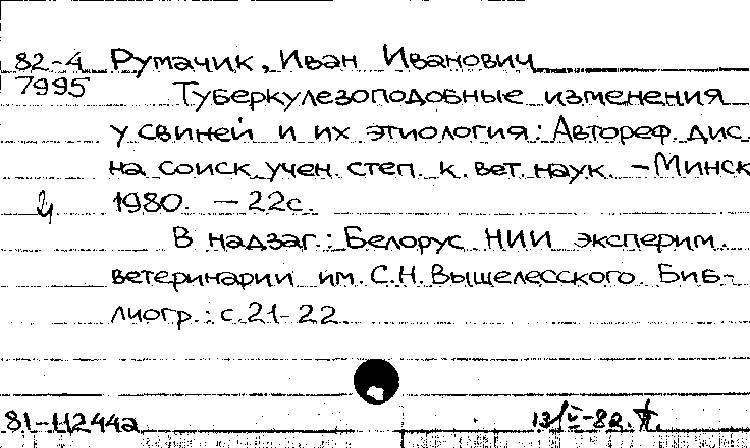 82-4 Румачик, Иван Иванович
7995 Туберкулезоподобные изменения
у свиней и их этиология: Автореф. дис.
на соиск. учен. степ. к. вет. наук. - Минск
1980. - 22с.
В надзаг.: Белорус. НИИ эксперим.
ветеринарии им. С.Н. Вышелесского. Биб-
лиогр.: с. 21-22.
81-11244а